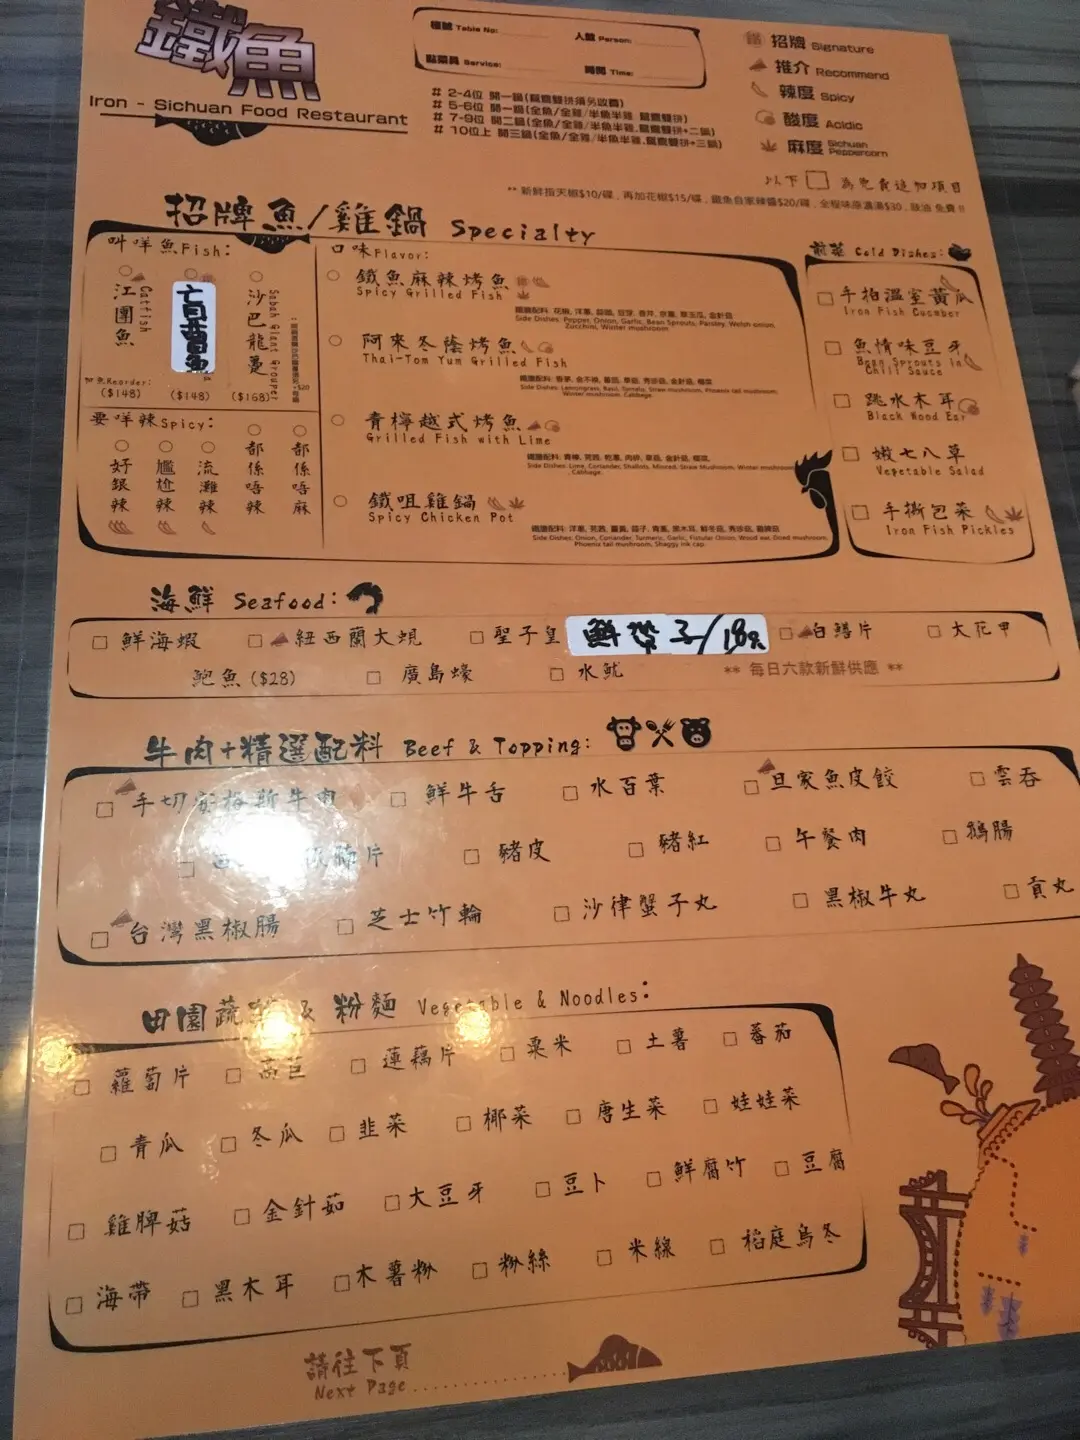 鐵魚
Iron - Sichuan Food Restaurant
檯號 Table No: 人數 Person:
點菜員 Service: 時間 Time:
# 2-4位 開一鍋(鴛鴦雙拼須另收費)
# 5-6位 開一鍋(全魚/全雞/半魚半雞 鴛鴦雙拼)
# 7-9位 開二鍋(全魚/全雞/半魚半雞,鴛鴦雙拼+二鍋)
# 10位上 開三鍋(全魚/全雞/半魚半雞,鴛鴦雙拼+三鍋)
招牌 Signature
推介 Recommend
辣度 Spicy
酸度 Acidic
麻度 Sichuan Peppercorn
以下 □ 為免費追加項目
** 新鮮指天椒$10/碟 , 再加花椒$15/碟 , 鐵魚自家辣醬$20/碟 , 全程味原濃湯$30 , 豉油 免費 !!
招牌魚/雞鍋 Specialty
叫咩魚Fish:
江團魚 Catfish
沙巴龍躉 Sabah Giant Grouper
加魚Reorder:
($148) ($148) ($168)
要咩辣Spicy:
好銀辣
尷尬辣
流灘辣
都係唔辣
都係唔麻
口味Flavor:
鐵魚麻辣烤魚
Spicy Grilled Fish
Side Dishes: Pepper, Onion, Garlic, Bean Sprouts, Parsley, Welsh onion,
Zucchini, Winter mushroom
阿來冬陰烤魚
Thai-Tom Yum Grilled Fish
Side Dishes: Lemongrass, Basil, Tomato, Straw mushroom, Phoenix tail mushroom,
Winter mushroom, Cabbage.
青檸越式烤魚
Grilled Fish with Lime
Side Dishes: Lime, Coriander, Shallots, Minced, Straw Mushroom, Winter mushroom
, Cabbage.
鐵咀雞鍋
Spicy Chicken Pot
Side Dishes: Onion, Coriander, Turmeric, Garlic, Fistular Onion, Wood ear, Dried mushroom,
Phoenix tail mushroom, Shaggy ink cap.
前菜 Cold Dishes:
手拍溫室黃瓜
Iron Fish Cucmber
魚情味豆牙
Bean Sprouts in
Chili Sauce
跳水木耳
Black Wood Ear
嫩七八草
Vegetable Salad
手撕包菜
Iron Fish Pickles
海鮮 Seafood:
□ 鮮海蝦 □ 紐西蘭大蜆 □ 聖子皇 □ 白鱔片 □ 大花甲
鮑魚($28) □ 廣島蠔 □ 水魷 ** 每日六款新鮮供應 **
牛肉+精選配料 Beef & Topping:
□ 手切安格斯牛肉 □ 鮮牛舌 □ 水百葉 □ 旦家魚皮餃 □ 雲吞
□ 豬皮 □ 豬紅 □ 午餐肉 □ 鵝腸
□ 台灣黑椒腸 □ 芝士竹輪 □ 沙律蟹子丸 □ 黑椒牛丸 □ 貢丸
田園蔬菜 & 粉麵 Vegetable & Noodles:
□ 蘿蔔片 □ 萵苣 □ 蓮藕片 □ 粟米 □ 土薯 □ 蕃茄
□ 青瓜 □ 冬瓜 □ 韭菜 □ 椰菜 □ 唐生菜 □ 娃娃菜
□ 雞脾菇 □ 金針茹 □ 大豆牙 □ 豆卜 □ 鮮腐竹 □ 豆腐
□ 海帶 □ 黑木耳 □ 木薯粉 □ 粉絲 □ 米線 □ 稻庭烏冬
請往下頁
Next Page